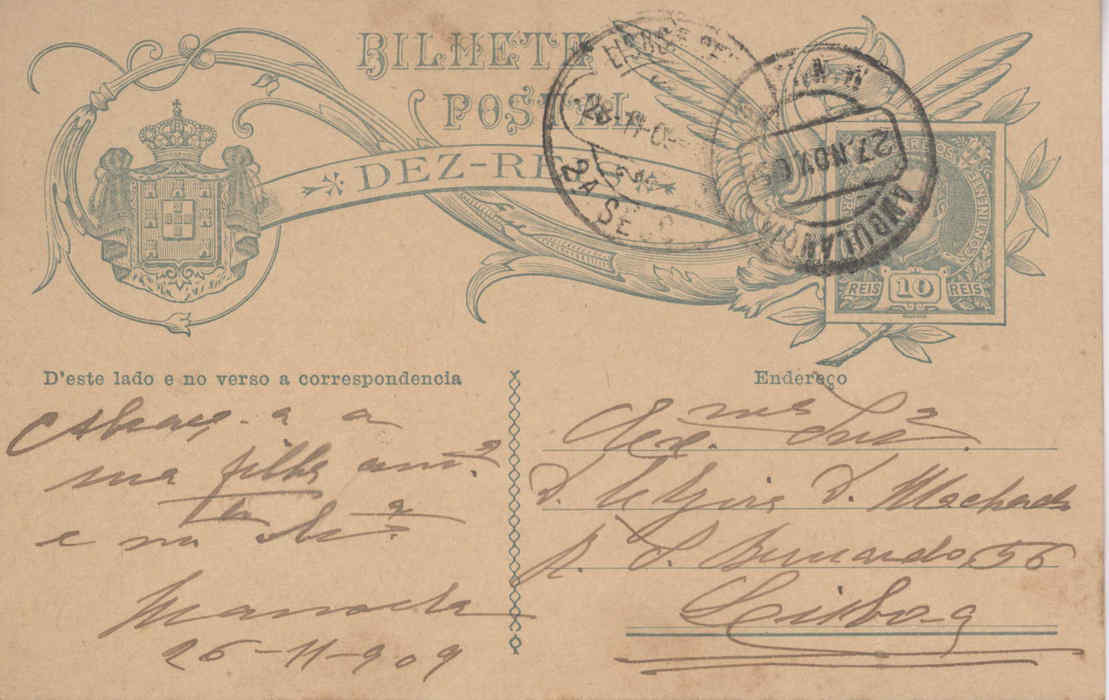 BILHETE
POSTAL
DEZ-RE
LISBOA
28-11-0
2A SEC
27.NOV.0
AMBULANCIA
REIS 10 REIS
D'este lado e no verso a correspondencia
Endereço
Abraça a
sua filha am.ª
e
Manoela
26-11-909
Ex.mª Snr.ª
D. D. Machado
R. S. Bernardo, 56
Lisboa